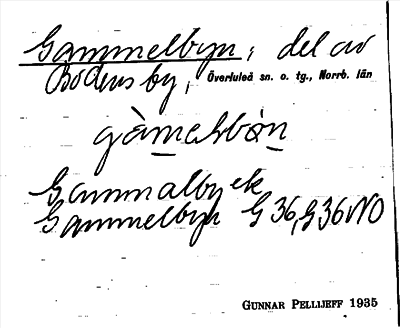 Gammelbyn; del av
Bodens by, Överluleå sn. o. tg., Norrb. län
gàmelbòn
Gammalbyek
Gammelbyn G 36, G 36 NO
GUNNAR PELLIJEFF 1935